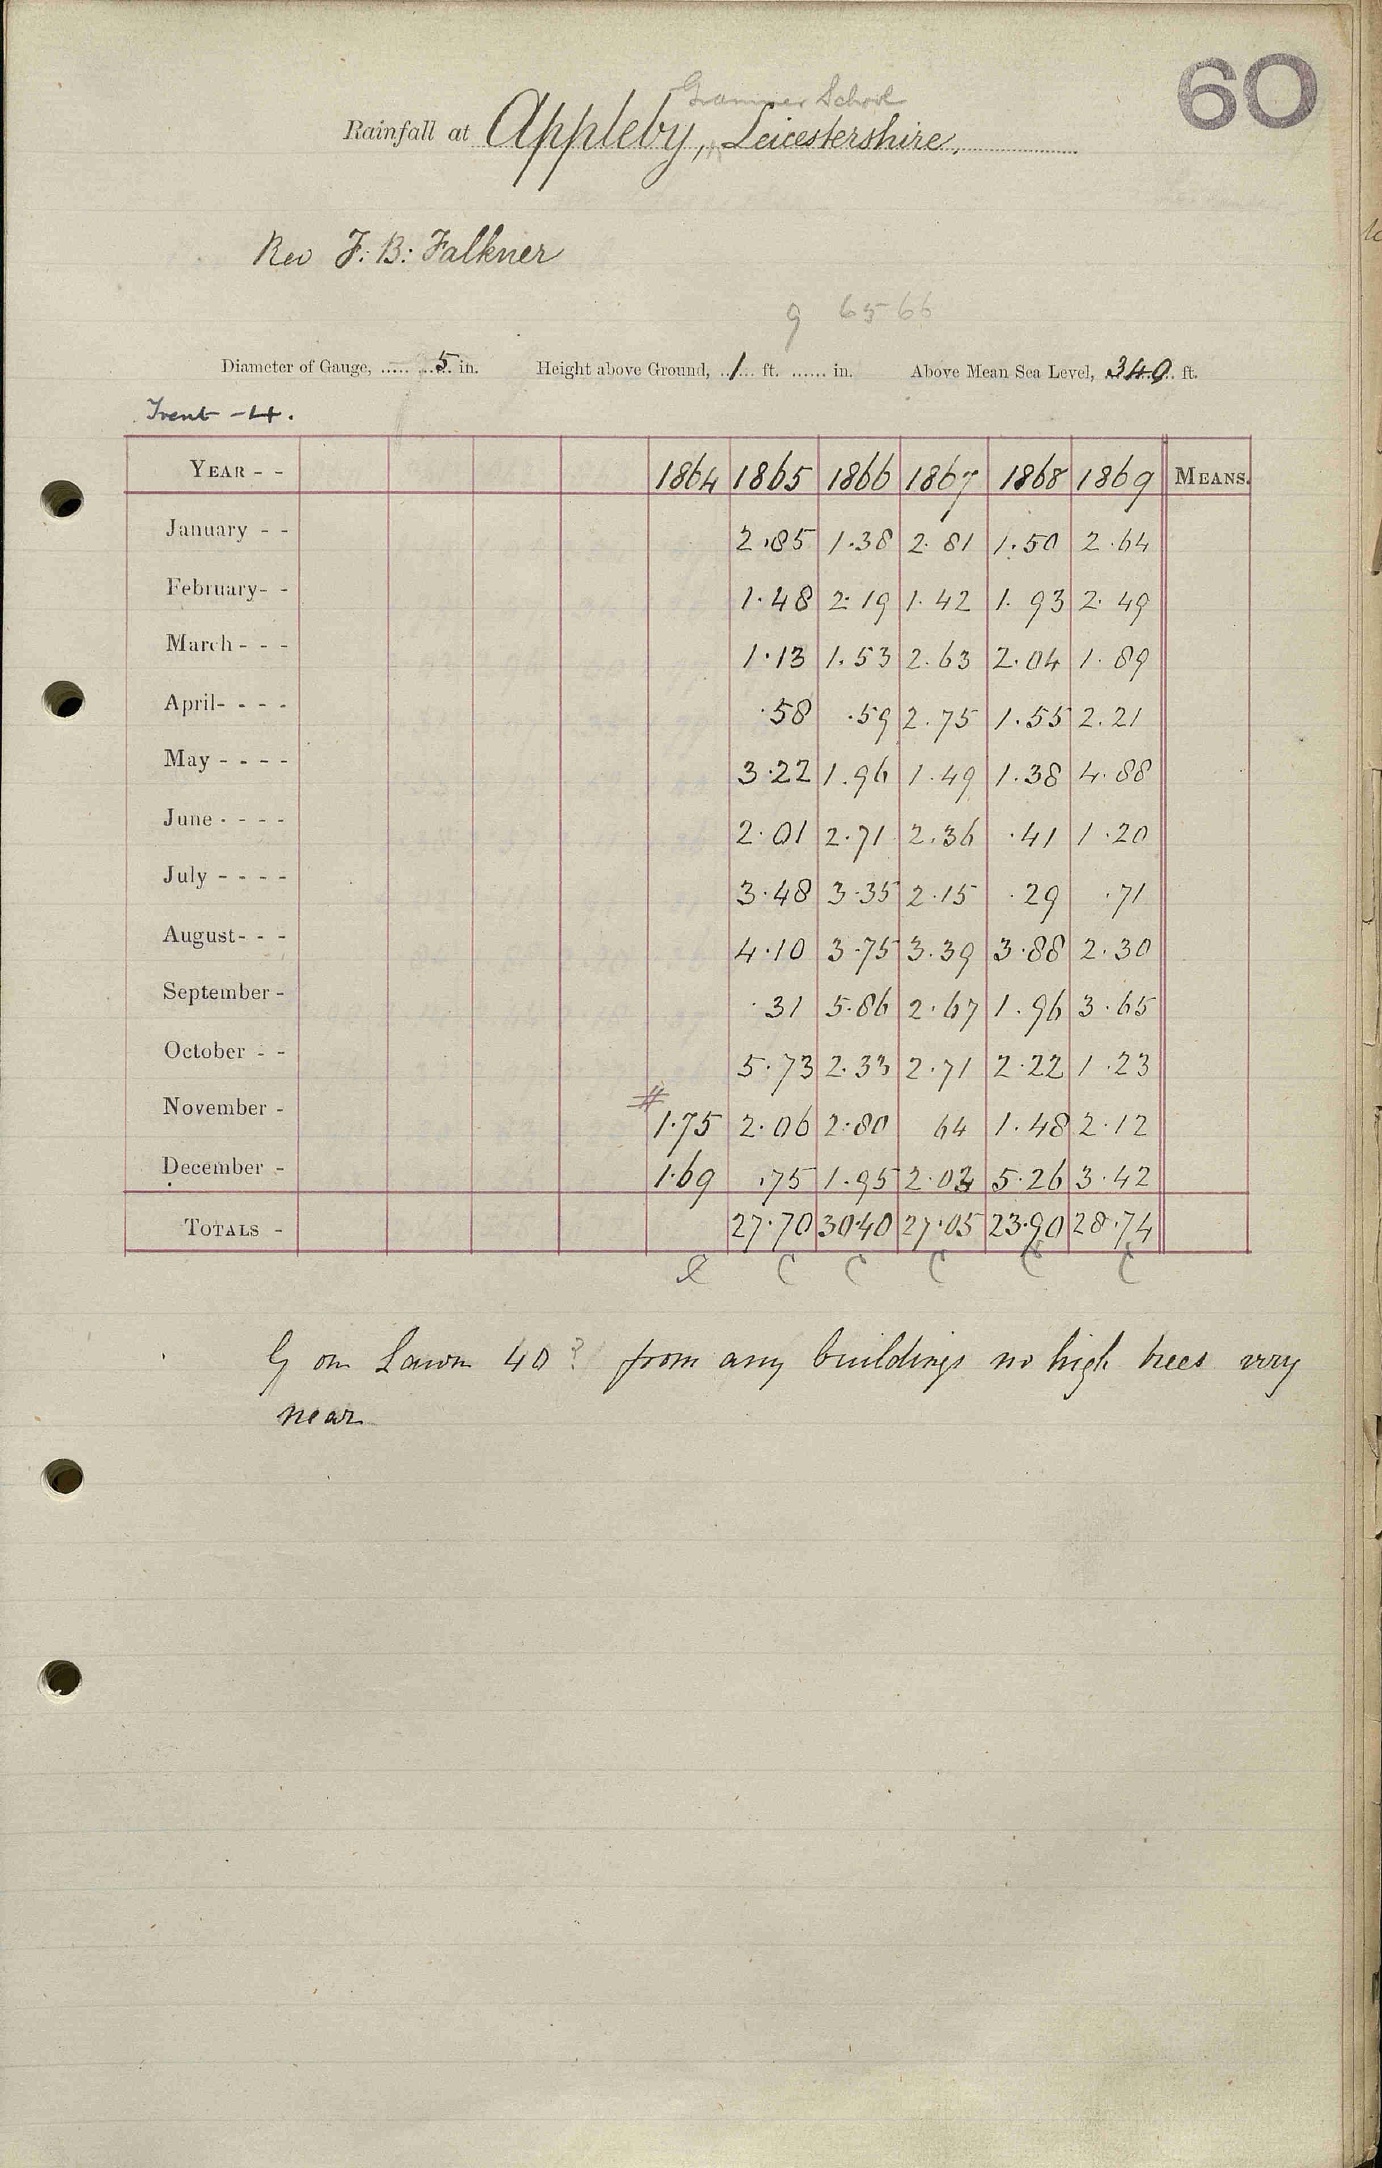 60
Grammar School
Rainfall at Appleby, Leicestershire.
Rev F. B. Falkner
9 65 66
Diameter of Gauge, 5 in. Height above Ground, 1 ft. in. Above Mean Sea Level, 340 ft.
Trent - 4.
YEAR 1864 1865 1866 1867 1868 1869 MEANS.
January 2.85 1.38 2.81 1.50 2.64
February 1.48 2.19 1.42 1.93 2.49
March 1.13 1.53 2.63 2.04 1.89
April .58 .59 2.75 1.55 2.21
May 3.22 1.96 1.49 1.38 4.88
June 2.01 2.71 2.36 .41 1.20
July 3.48 3.35 2.15 .29 .71
August 4.10 3.75 3.39 3.88 2.30
September .31 5.86 2.67 1.96 3.65
October 5.73 2.33 2.71 2.22 1.23
November # 1.75 2.06 2.80 64 1.48 2.12
December 1.69 .75 1.95 2.03 5.26 3.42
TOTALS 27.70 30.40 27.05 23.90 28.74
C C C C C
G on Lawn 40 ? from any buildings no high trees very
near